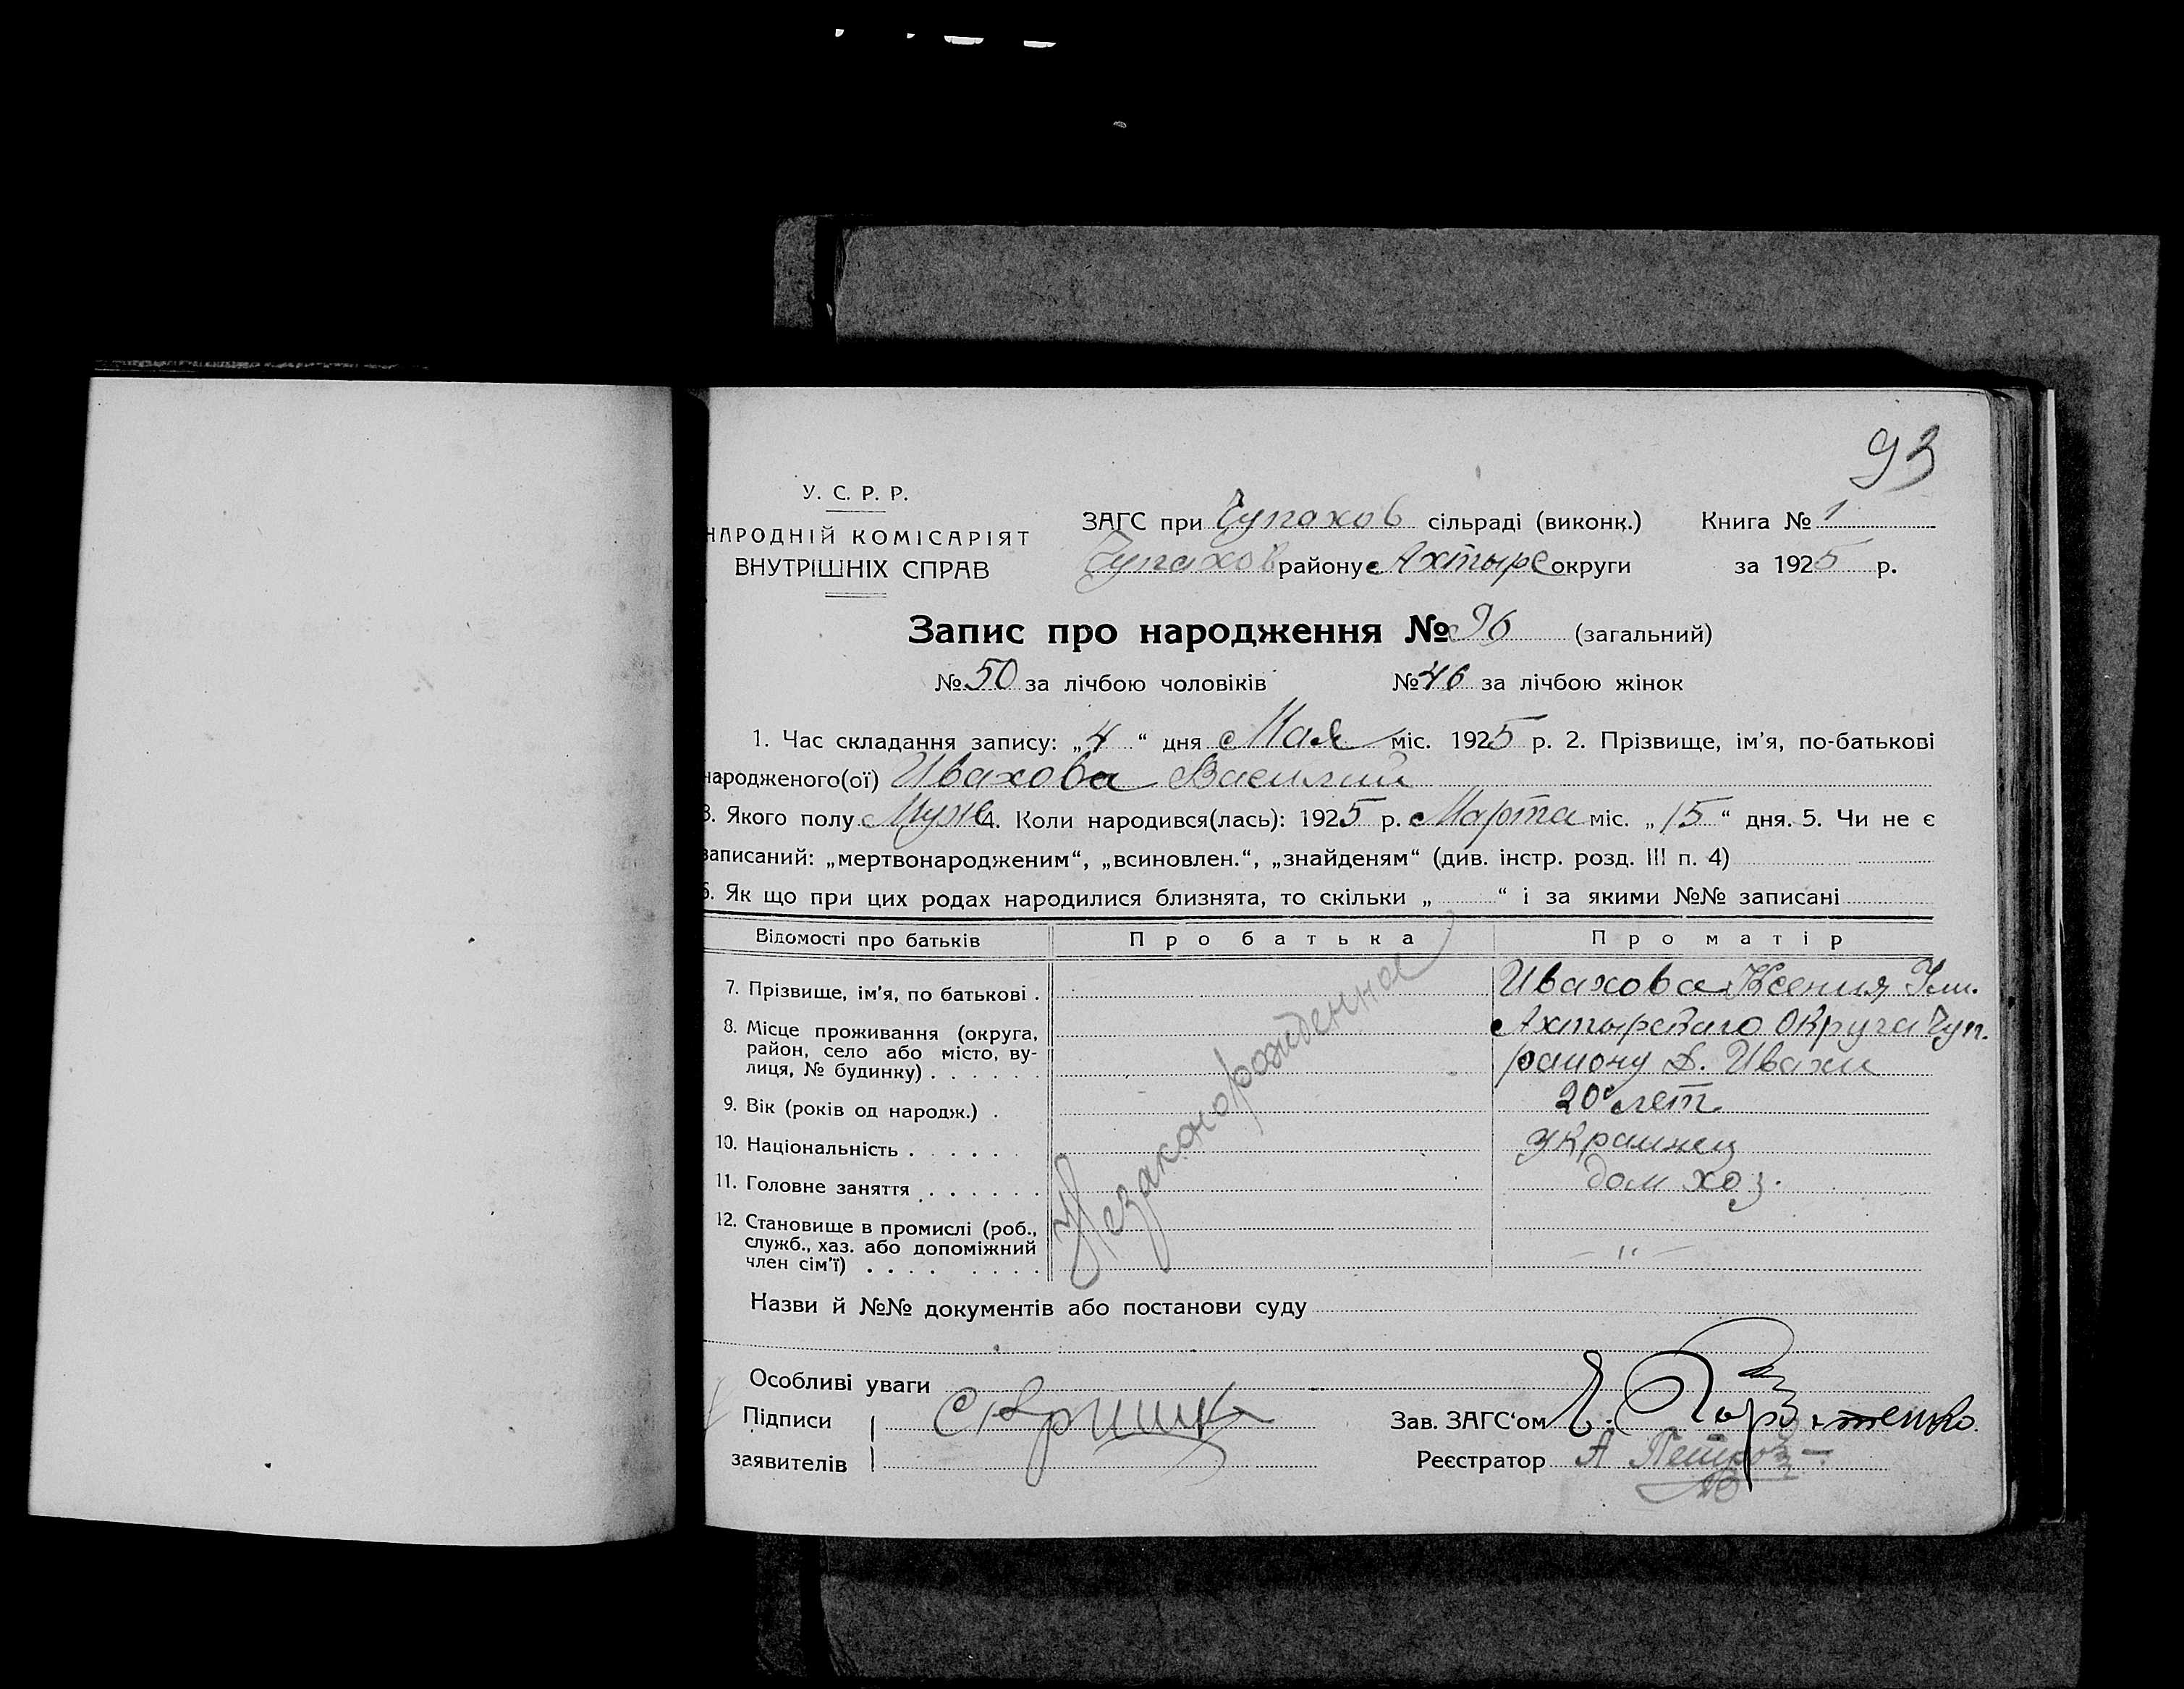 93
У. С. Р. Р.
НАРОДНІЙ КОМІСАРІЯТ
ВНУТРІШНІХ СПРАВ
ЗАГС при Чупахов сільраді (виконк.) Книга № 1
Чупахов району Ахтырс округи за 1925 р.
Запис про народження № 96 (загальний)
№ 50 за лічбою чоловіків № 46 за лічбою жінок
1. Час складання запису: „4“ дня Мая міс. 1925 р. 2. Прізвище, ім'я, по-батькові
народженого(ої) Ивахова Василий
3. Якого полу Муж 4. Коли народився(лась): 1925 р. Марта міс. „15“ дня. 5. Чи не є
записаний: „мертвонародженим“, „всиновлен.“, „знайденям“ (див. інстр. розд. III п. 4)
6. Як що при цих родах народилися близнята, то скільки „ “ і за якими №№ записані
Відомості про батьків Про батька Про матір
7. Прізвище, ім'я, по батькові . Ивахова Ксения
8. Місце проживання (округа, Ахтырскаго Округа Чуп.
район, село або місто, ву- району Д. Ивахи
лиця, № будинку) . . . . .
9. Вік (років од народж.) . 20 лет
10. Національність . . . . . . Украинец
11. Головне заняття . . . . . . дом хоз.
12. Становище в промислі (роб.,
служб., хаз. або допоміжний - " -
член сім'ї) . . . . . . . .
Незаконорожденное
Назви й №№ документів або постанови суду
Особливі уваги
Підписи Зав. ЗАГС'ом
заявителів Реєстратор А